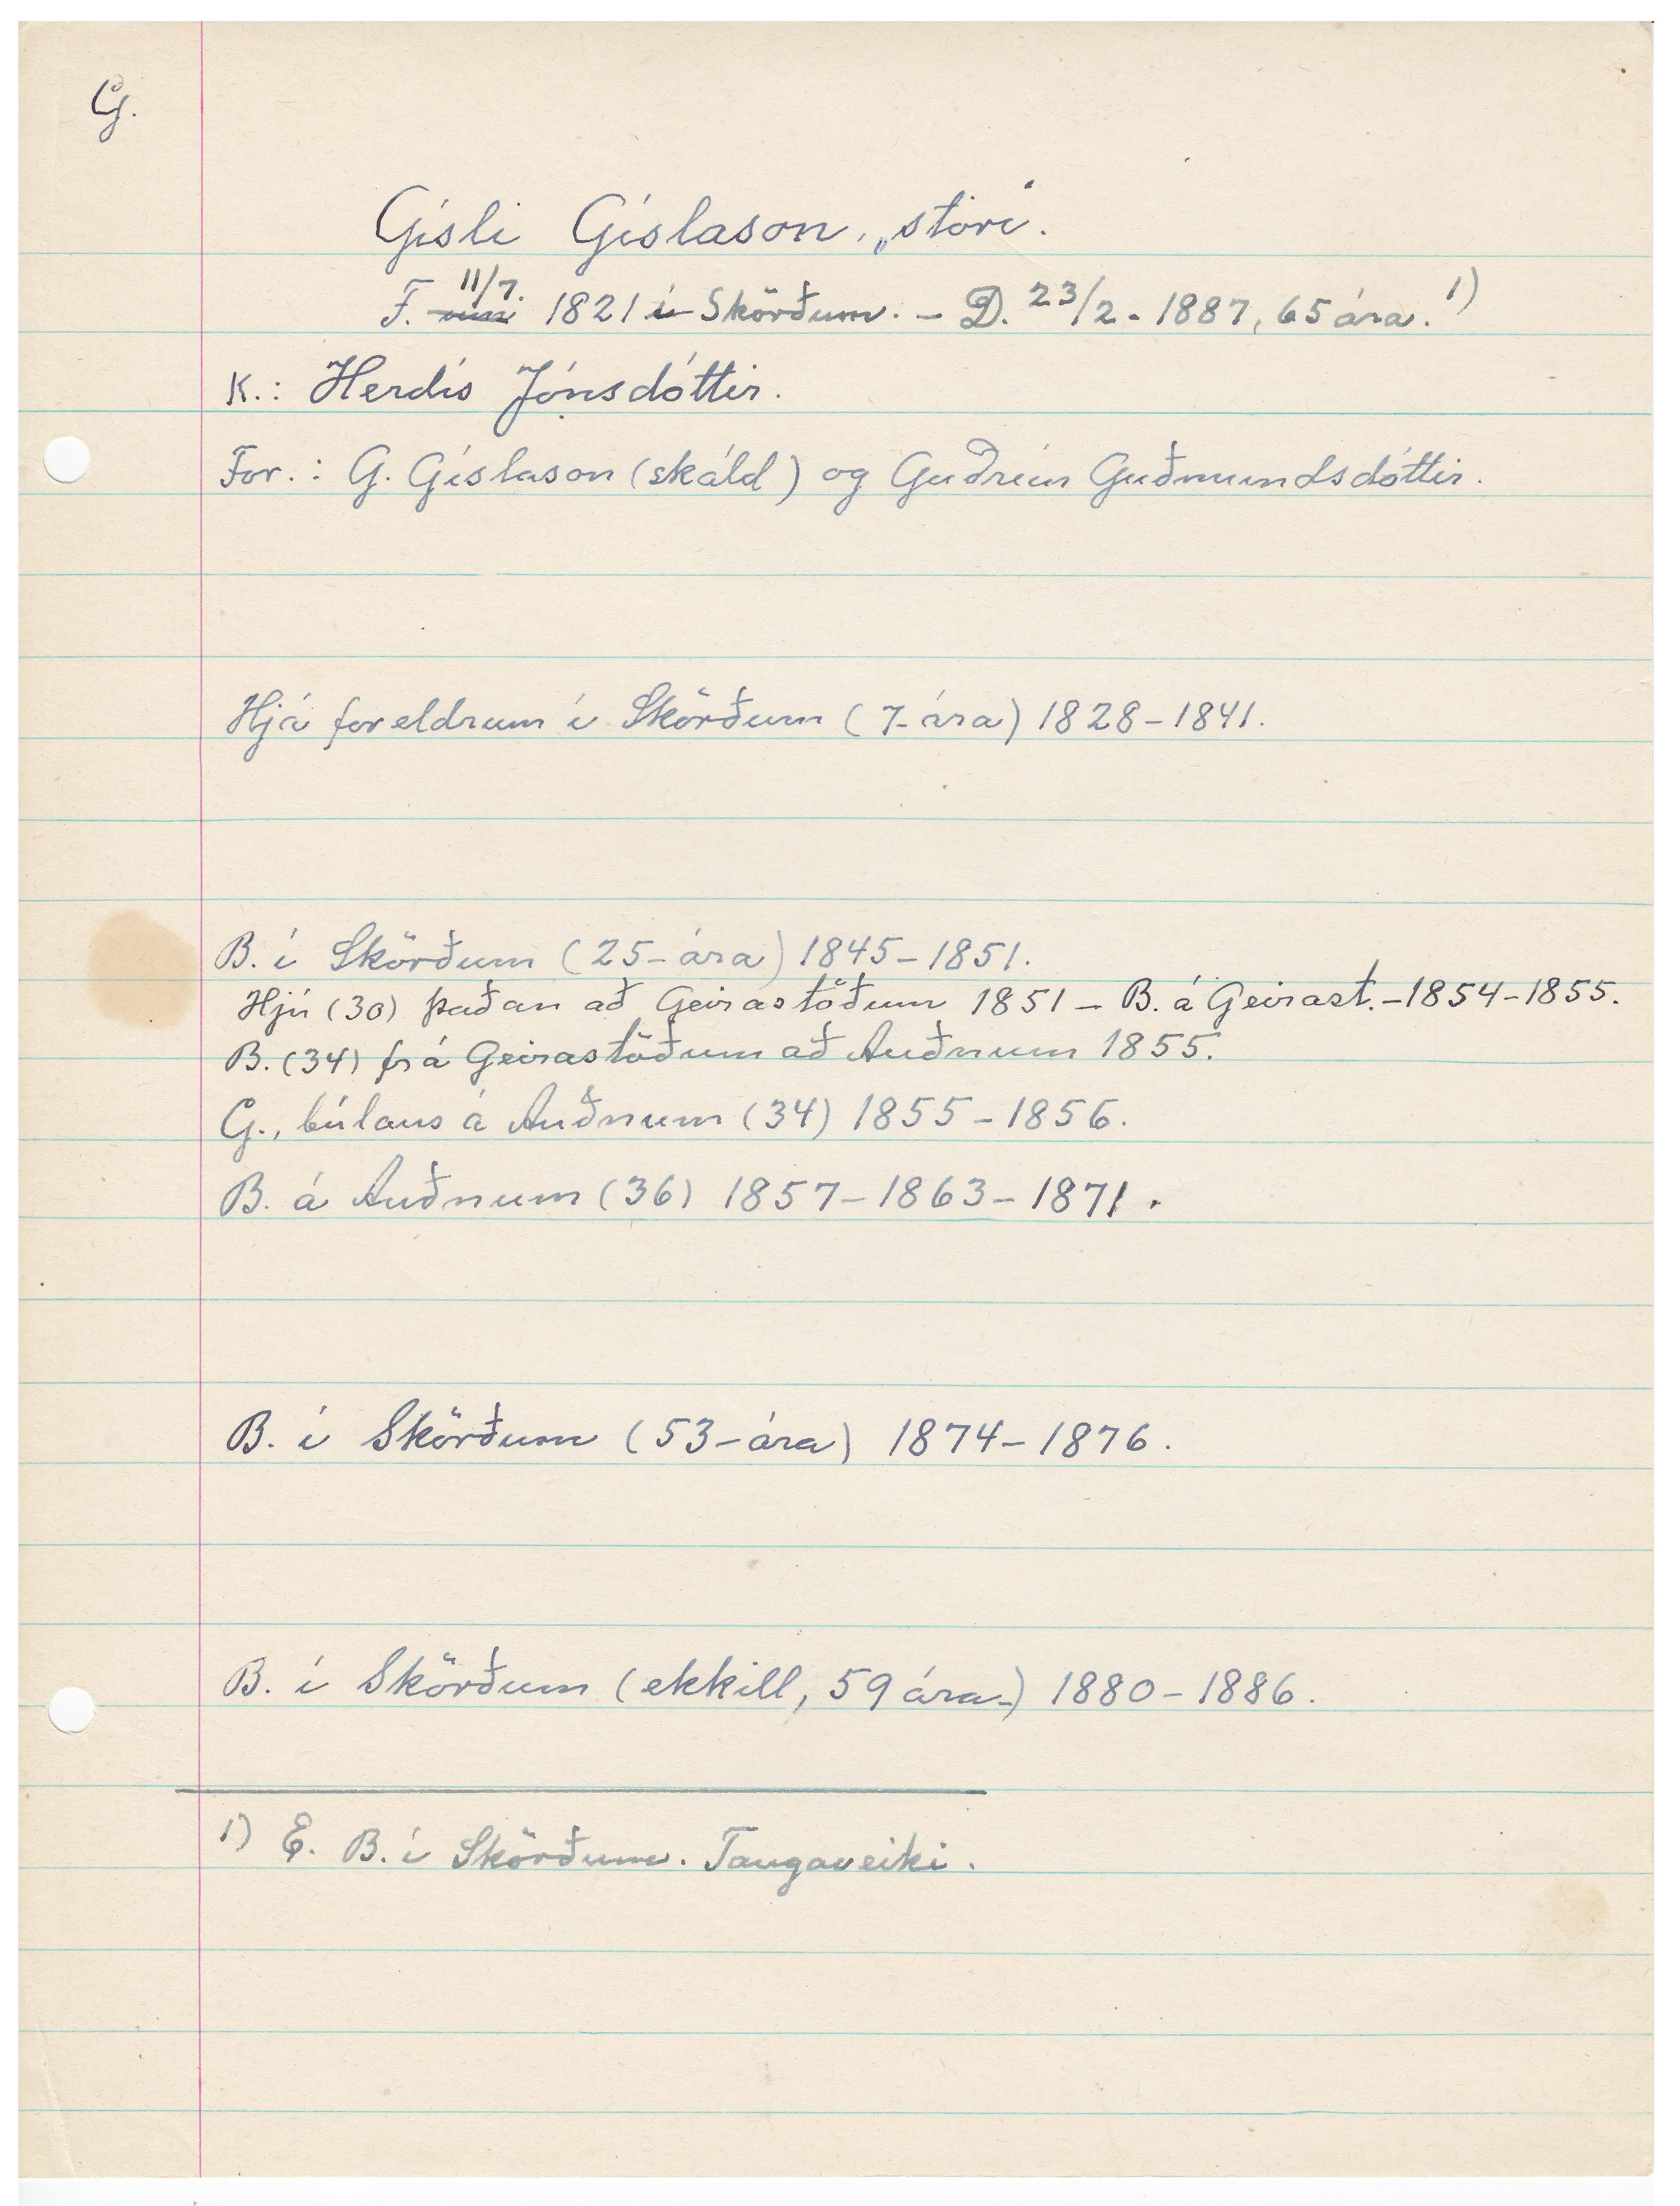 G.
Gísli Gíslason, „stóri“.
F. 11/7. um 1821 í Skörðum. – D. 23/2 - 1887, 65 ára. 1)
K.: Herdís Jónsdóttir.
For.: G. Gíslason (skáld) og Guðrún Guðmundsdóttir.
Hjá foreldrum í Skörðum (7-ára) 1828–1841.
B. í Skörðum (25-ára) 1845–1851.
Hjú (30) þaðan að Geirastöðum 1851 – B. á Geirast. –1854–1855.
B. (34) frá Geirastöðum að Auðnum 1855.
G., búlaus á Auðnum (34) 1855–1856.
B. á Auðnum (36) 1857–1863–1871.
B. í Skörðum (53-ára) 1874–1876.
B. í Skörðum (ekkill, 59 ára) 1880–1886.
1) E. B. í Skörðum. Taugaveiki.